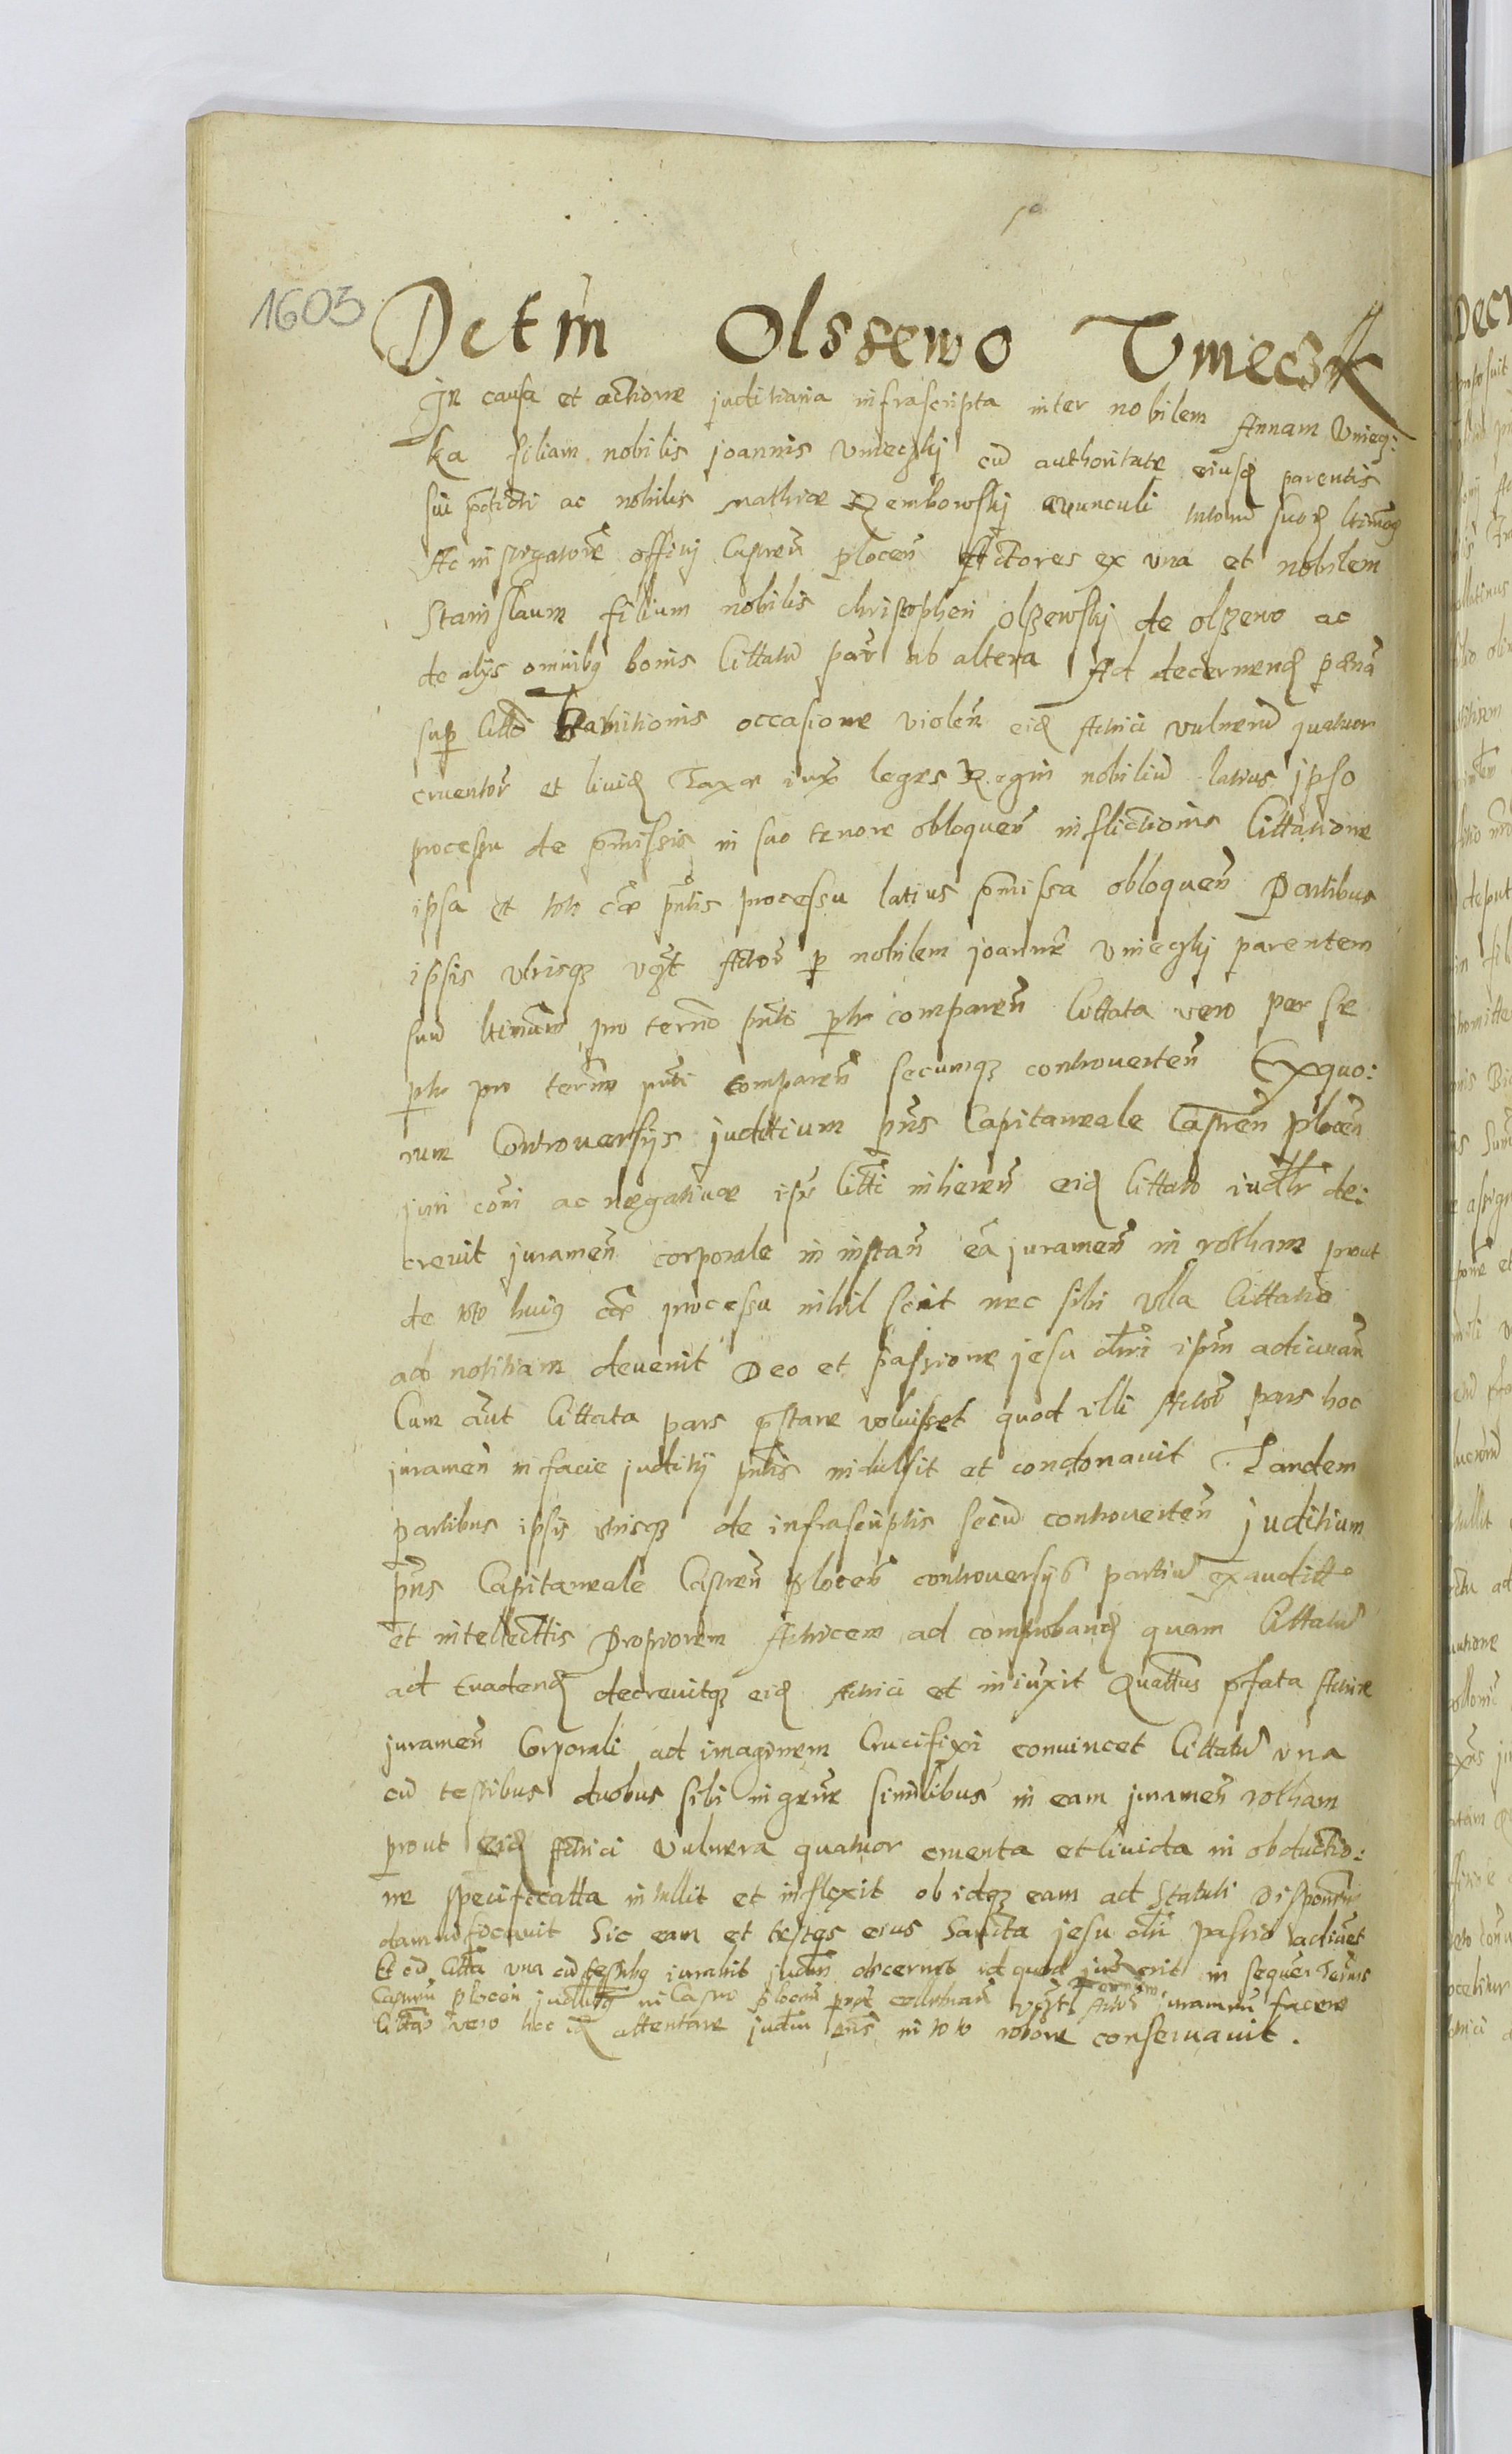 1603
Dctm̃ Olssewo Vmieczk
In causa et actione juditiaria infrascripta inter nobilem Annam Vmiecz:
ka filiam nobilis joannis Vmieczkj cũ authoritate eiusd parentis
sui p̃dicti ac nobilis Mathiæ Rembowskj avunculi tutorũ suorꝫ ltimoꝝ
Ac instigatorẽ offitij Castren̄ plocen̄ Actores ex vna et nobilem
Stanislaum filium nobilis christopheri olszewskj de olszewo ac
de alijs omnibꝫ bonis Cittatũ par̃ ab altera Ad decernend pœnã
sup Citto occasione violen̄ eid Actrici vulnerũ quatuor
cruentor̃ et livid Taxæ iux̃ leges Regni nobiliũ latius ipso
processu de p̃missis in suo tenore obloquen̄ inflictionis Cittatione
ipsa et toto cæ p̃ntis processu latius p̃missa obloquen̄ Partibus
ipsis vtrisqꝫ vꝫt Actor̃ p nobilem joannẽ Vmieczkj parentem
suũ ltimum pro termõ p̃nti plr comparen̄ Cittata vero per se
plr pro termõ p̃nti comparen̄ secumqꝫ controverten̄ Ex quo:
rum Controversijs juditium p̃ns Capitaneale Castren̄ plocen̄
juri cõi ac negativæ ips̃ Citti inheren̄ eid Cittato iudlr de:
crevit juramen̄ corporale in instan̄ eã juramen̄ in rotham prout
de toto huiꝫ cæ processu nihil scit nec sibi vlla Cittatio
ad notitiam devenit Deo et passione jesu chri ipm̃ adiuvan̄
Cum aũt Cittata pars p̃stare voluisset quod illi Actor̃ pars hoc
juramen̄ in facie juditij p̃ntis indulsit et condonavit Tandem
partibus ipsis vtrisqꝫ de infrascriptis secũ controverten̄ juditium
p̃ns Capitaneale Castren̄ plocen̄ controversijs partiũ exauditis
et intellecttis Propriorem Actricem ad comproband quam Cittatũ
ad Evadend decrevitqꝫ eid Actrici et iniũxit Quattus p̃fata Actrix
juramen̄ Corporali ad imaginem Crucifixi convincet Cittatũ vna
cũ testibus duobus sibi in gen̄re similibus in eam juramen̄ rotham
prout eid Actrici vulnera quatuor cruenta et livida in obductio:
ne specificatta intullit et inflixit ob idqꝫ eam ad statuti disponen̄
damnificavit Sic eam et testes eius Sancta jesu chri passio adiuvet
Et cũ Citta vna cũ testibꝫ iurabit judm̃ decernet id quod juris erit in sequen̄ Terminis
Castren̄ plocen̄ judlibꝫ in Castro plocen̄ Terminum vꝫt Actor̃ juramen̄ facere
Cittato vero hoc id attentare judm̃ p̃ns in toto robore conservavit.